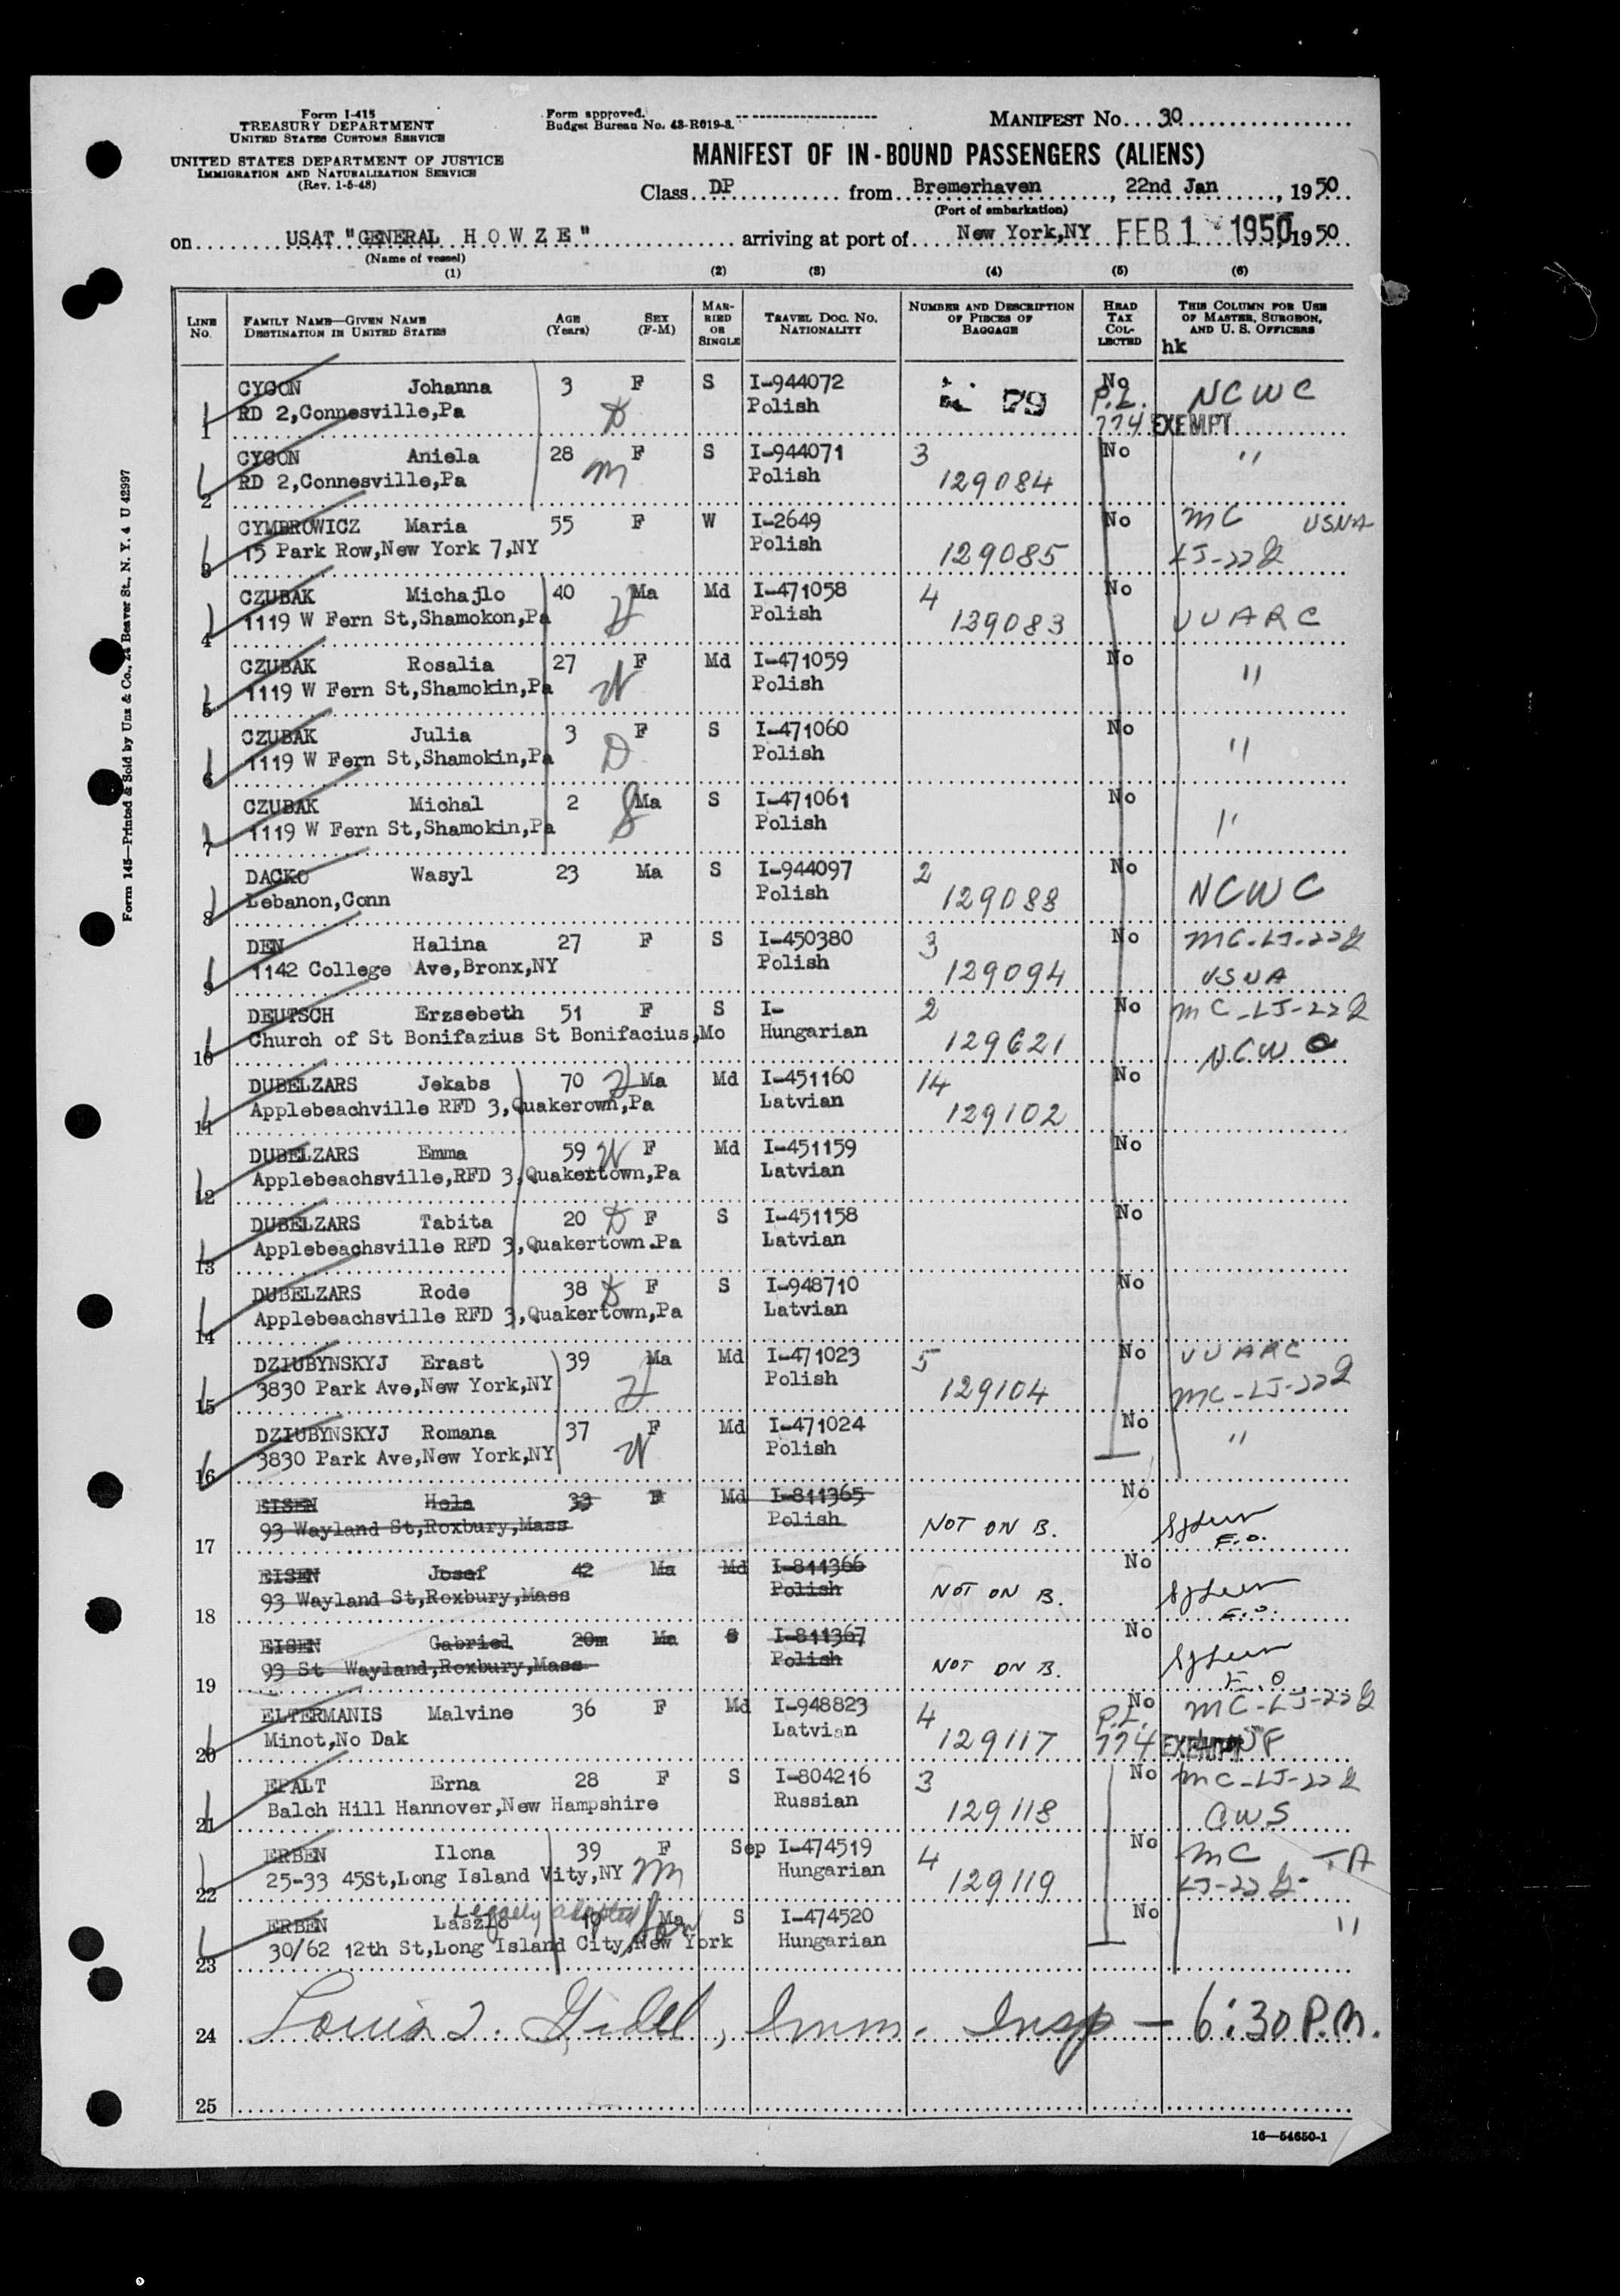 Form I-415
TREASURY DEPARTMENT
UNITED STATES CUSTOMS SERVICE
UNITED STATES DEPARTMENT OF JUSTICE
IMMIGRATION AND NATURALIZATION SERVICE
(Rev. 1-5-48)
Form approved.
Budget Bureau No. 43-R019-3.
MANIFEST NO. 30
MANIFEST OF IN-BOUND PASSENGERS (ALIENS)
Class DP from Bremerhaven, 22nd Jan, 1950
(Port of embarkation)
on USAT "GENERAL HOWZE" arriving at port of New York,NY FEB 1 1950, 1950
(Name of vessel)
(1) (2) (3) (4) (5) (6)
LINE NO. FAMILY NAME—GIVEN NAME DESTINATION IN UNITED STATES AGE (Years) SEX (F-M) MARRIED OR SINGLE TRAVEL DOC. NO. NATIONALITY NUMBER AND DESCRIPTION OF PIECES OF BAGGAGE HEAD TAX COLLECTED THIS COLUMN FOR USE OF MASTER, SURGEON, AND U. S. OFFICERS
hk
CYGON Johanna 3 F S I-944072 No NCWC
RD 2,Connesville,Pa D Polish 79 P.L.
1 774 EXEMPT
CYGON Aniela 28 F S I-944071 3 No "
RD 2,Connesville,Pa m Polish 129084
2
CYMBROWICZ Maria 55 F W I-2649 No MC USNA
15 Park Row,New York 7,NY Polish 129085 LJ-22
3
CZUBAK Michajlo 40 Ma Md I-471058 4 No
1119 W Fern St,Shamokon,Pa H Polish 139083 UUARC
4
CZUBAK Rosalia 27 F Md I-471059 No "
1119 W Fern St,Shamokin,Pa W Polish
5
CZUBAK Julia 3 F S I-471060 No "
1119 W Fern St,Shamokin,Pa D Polish
6
CZUBAK Michal 2 Ma S I-471061 No "
1119 W Fern St,Shamokin,Pa S Polish
7
DACKO Wasyl 23 Ma S I-944097 2 No NCWC
Lebanon,Conn Polish 129088
8
DEN Halina 27 F S I-450380 3 No MC-LJ-22
1142 College Ave,Bronx,NY Polish 129094 USNA
9
DEUTSCH Erzsebeth 51 F S I- 2 No MC-LJ-22
Church of St Bonifazius St Bonifacius,Mo Hungarian 129621 NCWC
10
DUBELZARS Jekabs 70 H Ma Md I-451160 14 No
Applebeachville RFD 3,Quakerown,Pa Latvian 129102
11
DUBELZARS Emma 59 W F Md I-451159 No
Applebeachsville,RFD 3,Quakertown,Pa Latvian
12
DUBELZARS Tabita 20 D F S I-451158 No
Applebeachsville RFD 3,Quakertown.Pa Latvian
13
DUBELZARS Rode 38 D F S I-948710 No
Applebeachsville RFD 3,Quakertown,Pa Latvian
14
DZIUBYNSKYJ Erast 39 Ma Md I-471023 5 No UUARC
3830 Park Ave,New York,NY H Polish 129104 MC-LJ-22
15
DZIUBYNSKYJ Romana 37 F Md I-471024 No "
3830 Park Ave,New York,NY W Polish
16
EISEN Hela 33 F Md I-811365 No
93 Wayland St,Roxbury,Mass Polish NOT ON B. E.O.
17
EISEN Josef 42 Ma Md I-811366 No
93 Wayland St,Roxbury,Mass Polish NOT ON B. E.O.
18
EISEN Gabriel 20m Ma S I-811367 No
93 St Wayland,Roxbury,Mass Polish NOT ON B. E.O.
19
ELTERMANIS Malvine 36 F Md I-948823 4 No MC-LJ-22
Minot,No Dak Latvian 129117 P.L.
20 774 EXEMPT
EPALT Erna 28 F S I-804216 3 No MC-LJ-22
Balch Hill Hannover,New Hampshire Russian 129118 CWS
21
ERBEN Ilona 39 F Sep I-474519 4 No MC TA
25-33 45St,Long Island Vity,NY m Hungarian 129119 LJ-22
22
Legally adopted son
ERBEN Laszlo 10 Ma S I-474520 No "
30/62 12th St,Long Island City,New York Hungarian
23
24 Imm. Insp — 6:30 P.M.
25
16—54650-1
Form 145—Printed & Sold by Unz & Co., 24 Beaver St., N. Y. 4 U 42997